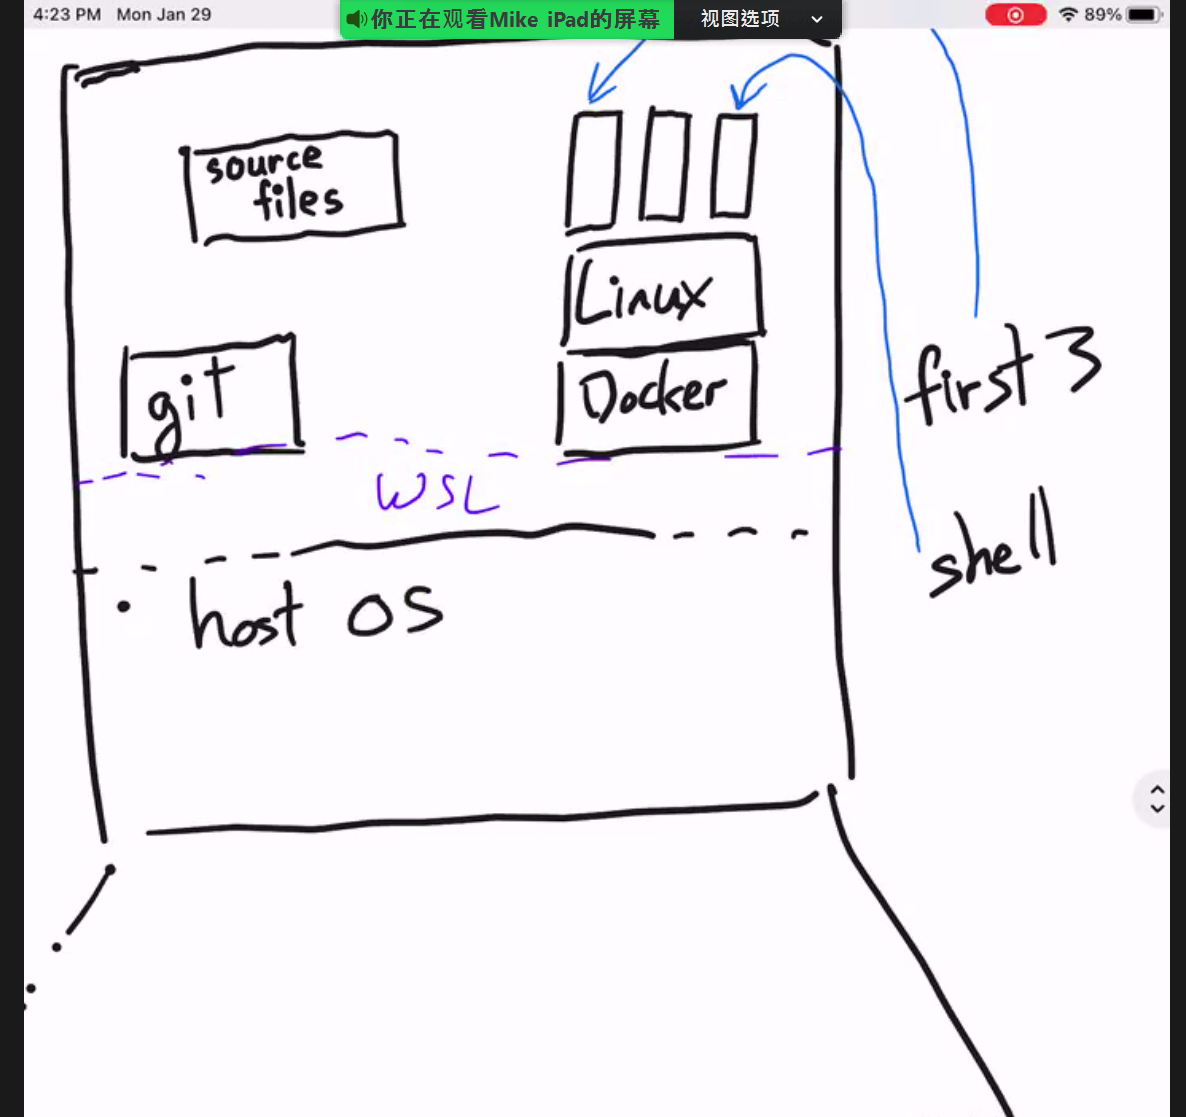 4:23 PM Mon Jan 29
你正在观看Mike iPad的屏幕
视图选项
89%
source
files
Linux
git
Docker
first 3
WSL
shell
host OS